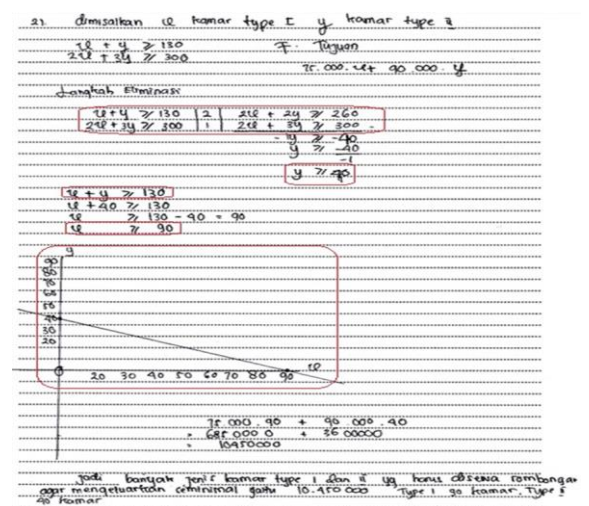 21. dimisalkan x kamar type I y kamar type II
x + y ≥ 130 F. Tujuan
2x + 3y ≥ 300
75.000.x + 90 000.y
Langkah Eliminasi
x+y ≥ 130 | 2 | 2x + 2y ≥ 260
2x+3y ≥ 300 | 1 | 2x + 3y ≥ 300 -
- y ≥ -40
y ≥ -40
-1
y ≥ 40
x + y ≥ 130
x + 40 ≥ 130
x ≥ 130 - 40 = 90
x ≥ 90
y
90
80
70
60
50
40
30
20
0 20 30 40 50 60 70 80 90 x
75 000 . 90 + 90 000 . 40
= 685 000 0 + 36 00000
= 10450000
Jadi banyak jenis kamar type I dan II yg harus disewa rombongan
agar mengeluarkan 10.450 000 Type I 90 kamar, Type II
40 kamar